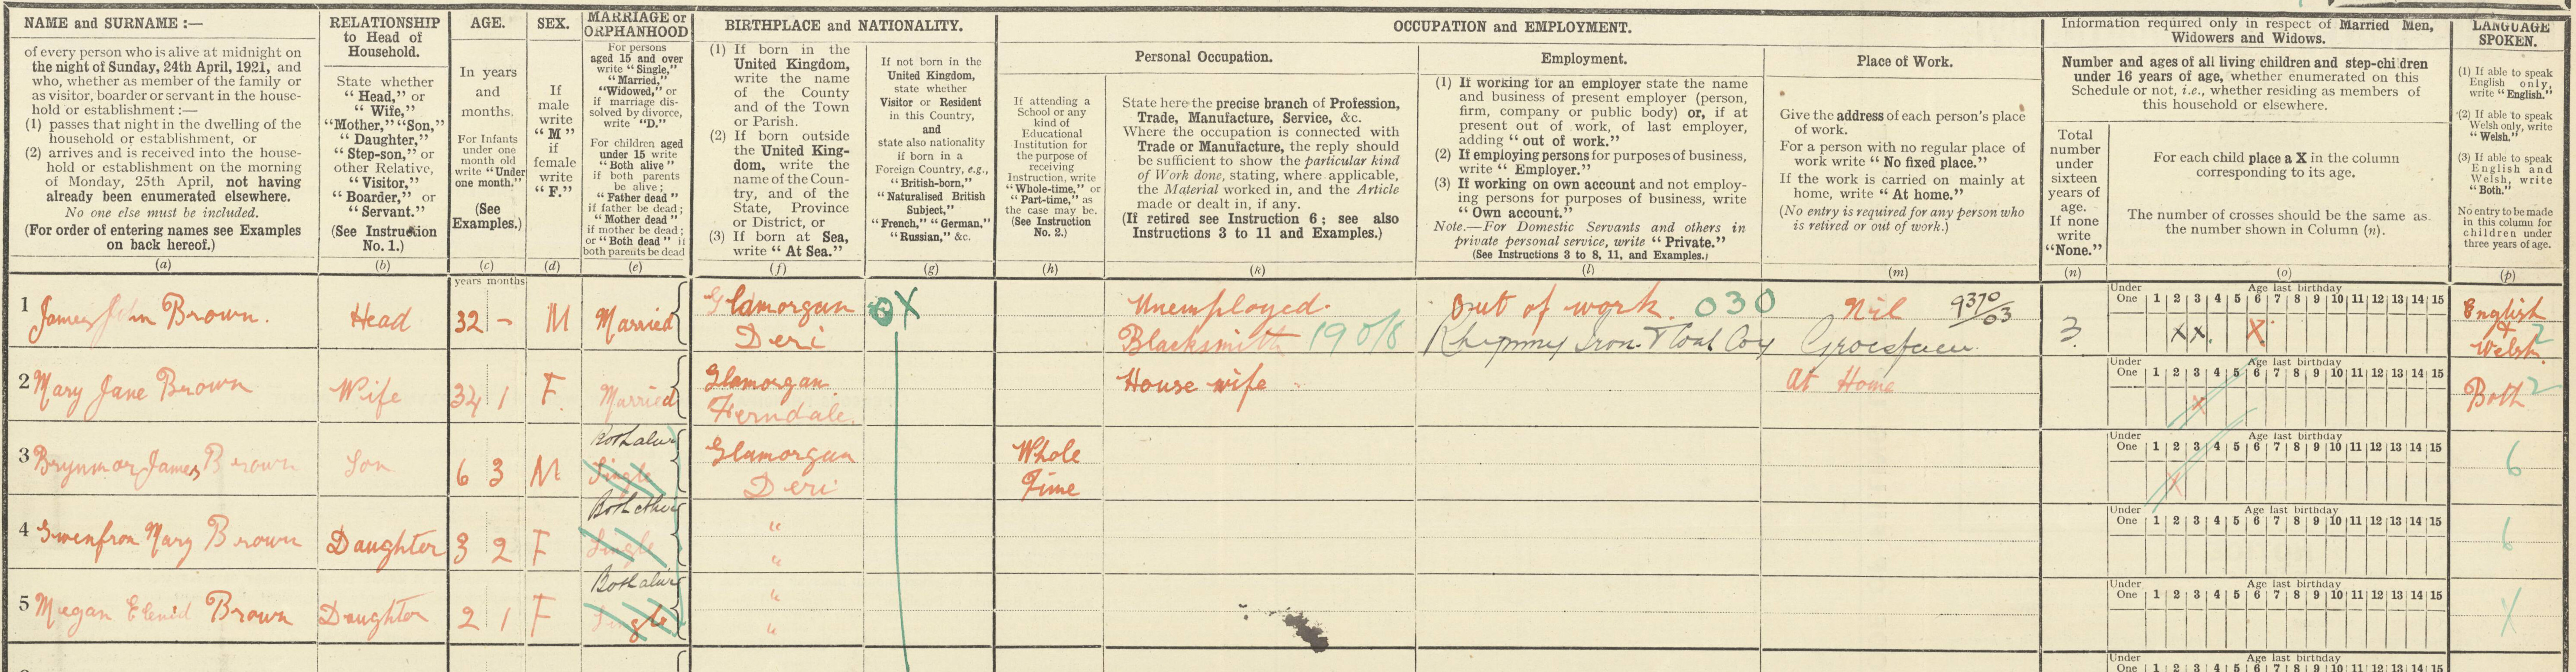 NAME and SURNAME :—
of every person who is alive at midnight on
the night of Sunday, 24th April, 1921, and
who, whether as member of the family or
as visitor, boarder or servant in the house-
hold or establishment :—
(1) passes that night in the dwelling of the
household or establishment, or
(2) arrives and is received into the house-
hold or establishment on the morning
of Monday, 25th April, not having
already been enumerated elsewhere.
No one else must be included.
(For order of entering names see Examples
on back hereof.)
(a)
RELATIONSHIP
to Head of
Household.
State whether
“Head,” or
“Wife,”
“Mother,” “Son,”
“Daughter,”
“Step-son,” or
other Relative,
“Visitor,”
“Boarder,” or
“Servant.”
(See Instruction
No. 1.)
(b)
AGE.
In years
and
months.
For Infants
under one
month old
write “Under
one month.”
(See
Examples.)
(c)
years months
SEX.
If
male
write
“M”
if
female
write
“F.”
(d)
MARRIAGE or
ORPHANHOOD
For persons
aged 15 and over
write “Single,”
“Married,”
“Widowed,” or
if marriage dis-
solved by divorce,
write “D.”
For children aged
under 15 write
“Both alive”
if both parents
be alive;
“Father dead”
if father be dead;
“Mother dead”
if mother be dead;
or “Both dead” if
both parents be dead
(e)
BIRTHPLACE and NATIONALITY.
(1) If born in the
United Kingdom,
write the name
of the County
and of the Town
or Parish.
(2) If born outside
the United King-
dom, write the
name of the Coun-
try, and of the
State, Province
or District, or
(3) If born at Sea,
write “At Sea.”
(f)
If not born in the
United Kingdom,
state whether
Visitor or Resident
in this Country,
and
state also nationality
if born in a
Foreign Country, e.g.,
“British-born,”
“Naturalised British
Subject,”
“French,” “German,”
“Russian,” &c.
(g)
OCCUPATION and EMPLOYMENT.
Personal Occupation.
If attending a
School or any
kind of
Educational
Institution for
the purpose of
receiving
Instruction, write
“Whole-time,” or
“Part-time,” as
the case may be.
(See Instruction
No. 2.)
(h)
State here the precise branch of Profession,
Trade, Manufacture, Service, &c.
Where the occupation is connected with
Trade or Manufacture, the reply should
be sufficient to show the particular kind
of Work done, stating, where applicable,
the Material worked in, and the Article
made or dealt in, if any.
(If retired see Instruction 6; see also
Instructions 3 to 11 and Examples.)
(k)
Employment.
(1) If working for an employer state the name
and business of present employer (person,
firm, company or public body) or, if at
present out of work, of last employer,
adding “out of work.”
(2) If employing persons for purposes of business,
write “Employer.”
(3) If working on own account and not employ-
ing persons for purposes of business, write
“Own account.”
Note.—For Domestic Servants and others in
private personal service, write “Private.”
(See Instructions 3 to 8, 11, and Examples.)
(l)
Place of Work.
Give the address of each person's place
of work.
For a person with no regular place of
work write “No fixed place.”
If the work is carried on mainly at
home, write “At home.”
(No entry is required for any person who
is retired or out of work.)
(m)
Information required only in respect of Married Men,
Widowers and Widows.
Number and ages of all living children and step-children
under 16 years of age, whether enumerated on this
Schedule or not, i.e., whether residing as members of
this household or elsewhere.
Total
number
under
sixteen
years of
age.
If none
write
“None.”
(n)
For each child place a X in the column
corresponding to its age.
The number of crosses should be the same as
the number shown in Column (n).
(o)
LANGUAGE
SPOKEN.
(1) If able to speak
English only,
write “English.”
(2) If able to speak
Welsh only, write
“Welsh.”
(3) If able to speak
English and
Welsh, write
“Both.”
No entry to be made
in this column for
children under
three years of age.
(p)
1 James John Brown. Head 32 - M Married Glamorgan Deri X Unemployed. Blacksmith 190/8 Out of work. 030 Rhymney Iron & Coal Coy Nil 9370/03 3. X X. X English & Welsh. 2
Under One 1 2 3 4 5 6 7 8 9 10 11 12 13 14 15
Age last birthday
2 Mary Jane Brown Wife 34 1 F. Married Glamorgan Ferndale. House wife At Home X Both 2
Under One 1 2 3 4 5 6 7 8 9 10 11 12 13 14 15
Age last birthday
3 Brynmor James Brown Son 6 3 M Both alive Single Glamorgan Deri Whole Time X 6
Under One 1 2 3 4 5 6 7 8 9 10 11 12 13 14 15
Age last birthday
4 Gwenfron Mary Brown Daughter 3 2 F Single " " 6
Under One 1 2 3 4 5 6 7 8 9 10 11 12 13 14 15
Age last birthday
5 Megan Elenid Brown Daughter 2 1 F Both alive Single " "
Under One 1 2 3 4 5 6 7 8 9 10 11 12 13 14 15
Age last birthday
Under One 1 2 3 4 5 6 7 8 9 10 11 12 13 14 15
Age last birthday